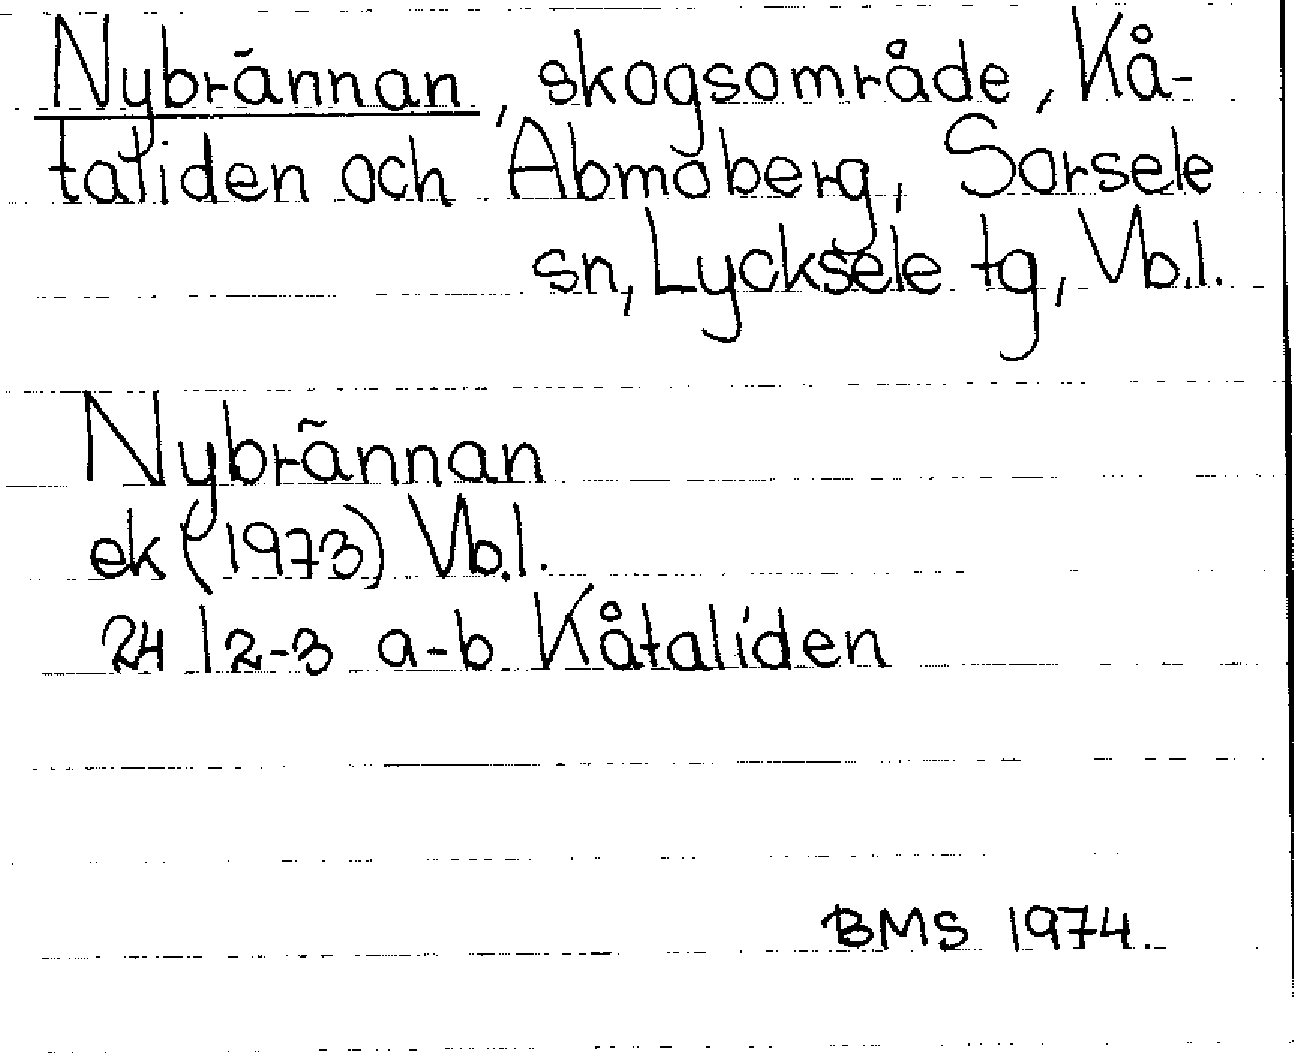 Nybrännan, skogsområde, Kå-
taliden och Abmoberg, Sorsele
sn, Lycksele tg, Vb.l.
Nybrännan
ek (1973) Vb.l.
24 I 2-3 a-b Kåtaliden
BMS 1974.